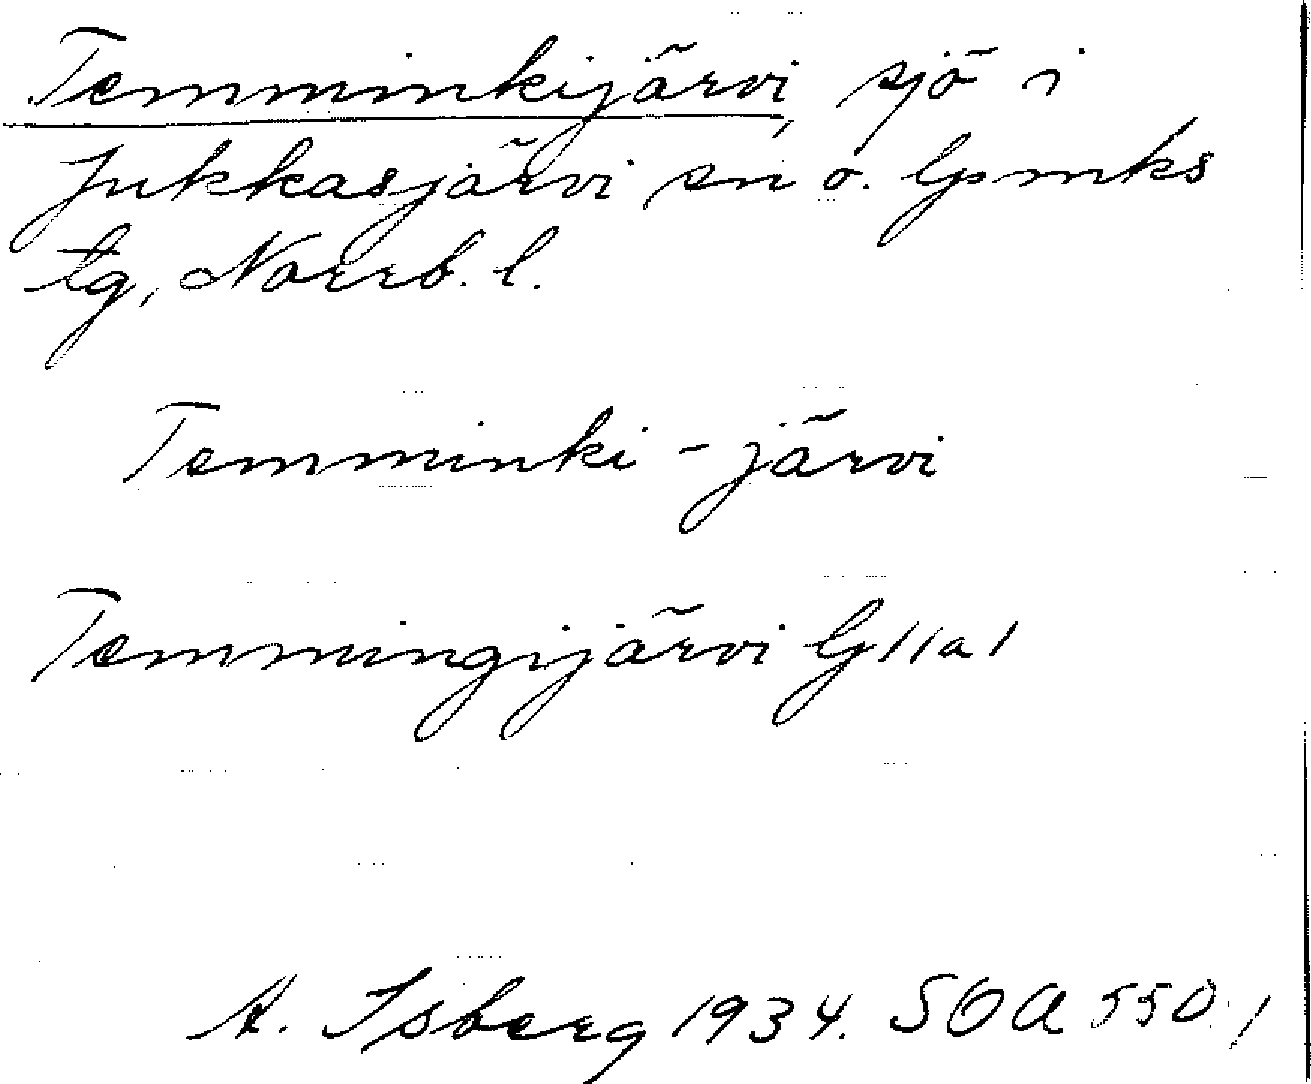 Temminkijärvi, sjö i
Jukkasjärvi sn o. lpmks
tg, Norrb. l.
Temminki-järvi
Temmingijärvi G 11 a 1
A. Isberg 1934. SOA 550:1